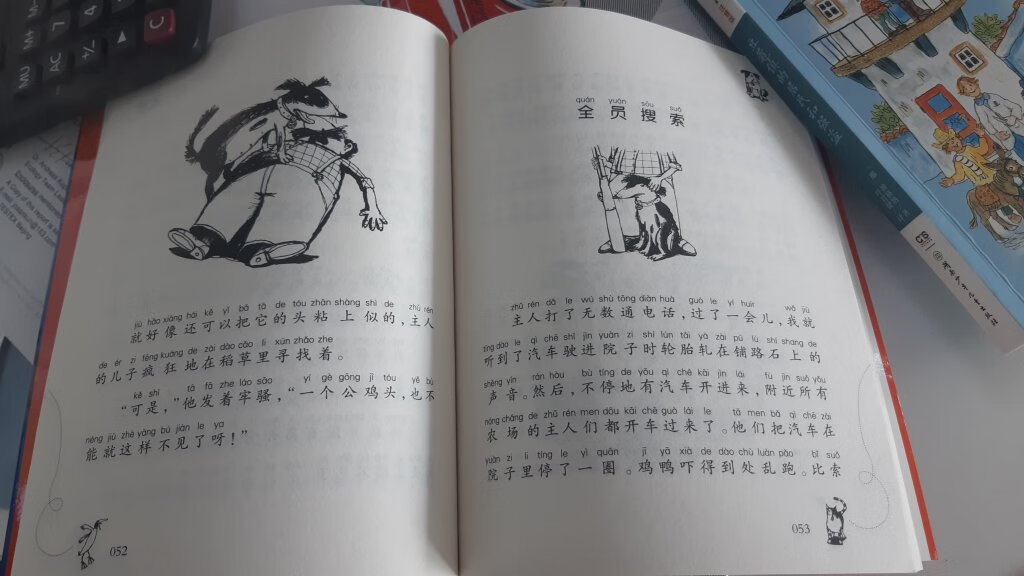 jiù hǎo xiàng hái kě yǐ bǎ tā de tóu zhān shàng shì de zhǔ rén
就好像还可以把它的头粘上似的,主人
de ér zi fēng kuáng de zài dào cǎo li xún zhǎo zhe
的儿子疯狂地在稻草里寻找着。
kě shì tā fā zhe láo sāo yí gè gōng jī tóu yě bù
“可是,”他发着牢骚,“一个公鸡头,也不
néng jiù zhè yàng bú jiàn le ya
能就这样不见了呀!”
052
quán yuán sōu suǒ
全员搜索
zhǔ rén dǎ le wú shù tōng diàn huà guò le yí huìr wǒ jiù
主人打了无数通电话,过了一会儿,我就
tīng dào le qì chē shǐ jìn yuàn zi shí lún tāi yà zài pū lù shí shang de
听到了汽车驶进院子时轮胎轧在铺路石上的
shēng yīn rán hòu bù tíng de yǒu qì chē kāi jìn lái fù jìn suǒ yǒu
声音。然后,不停地有汽车开进来,附近所有
nóng chǎng de zhǔ rén men dōu kāi chē guò lái le tā men bǎ qì chē zài
农场的主人们都开车过来了。他们把汽车在
yuàn zi li tíng le yì quān jī yā xià de dào chù luàn pǎo bǐ suǒ
院子里停了一圈。鸡鸭吓得到处乱跑。比索
053
MU AC +/- ▶ C
M+ 7 4